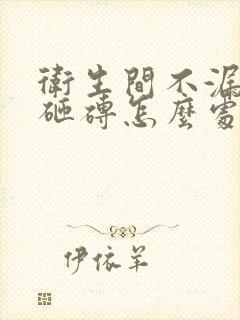 衛生間不漏
砸磚怎麼處
伊依羊